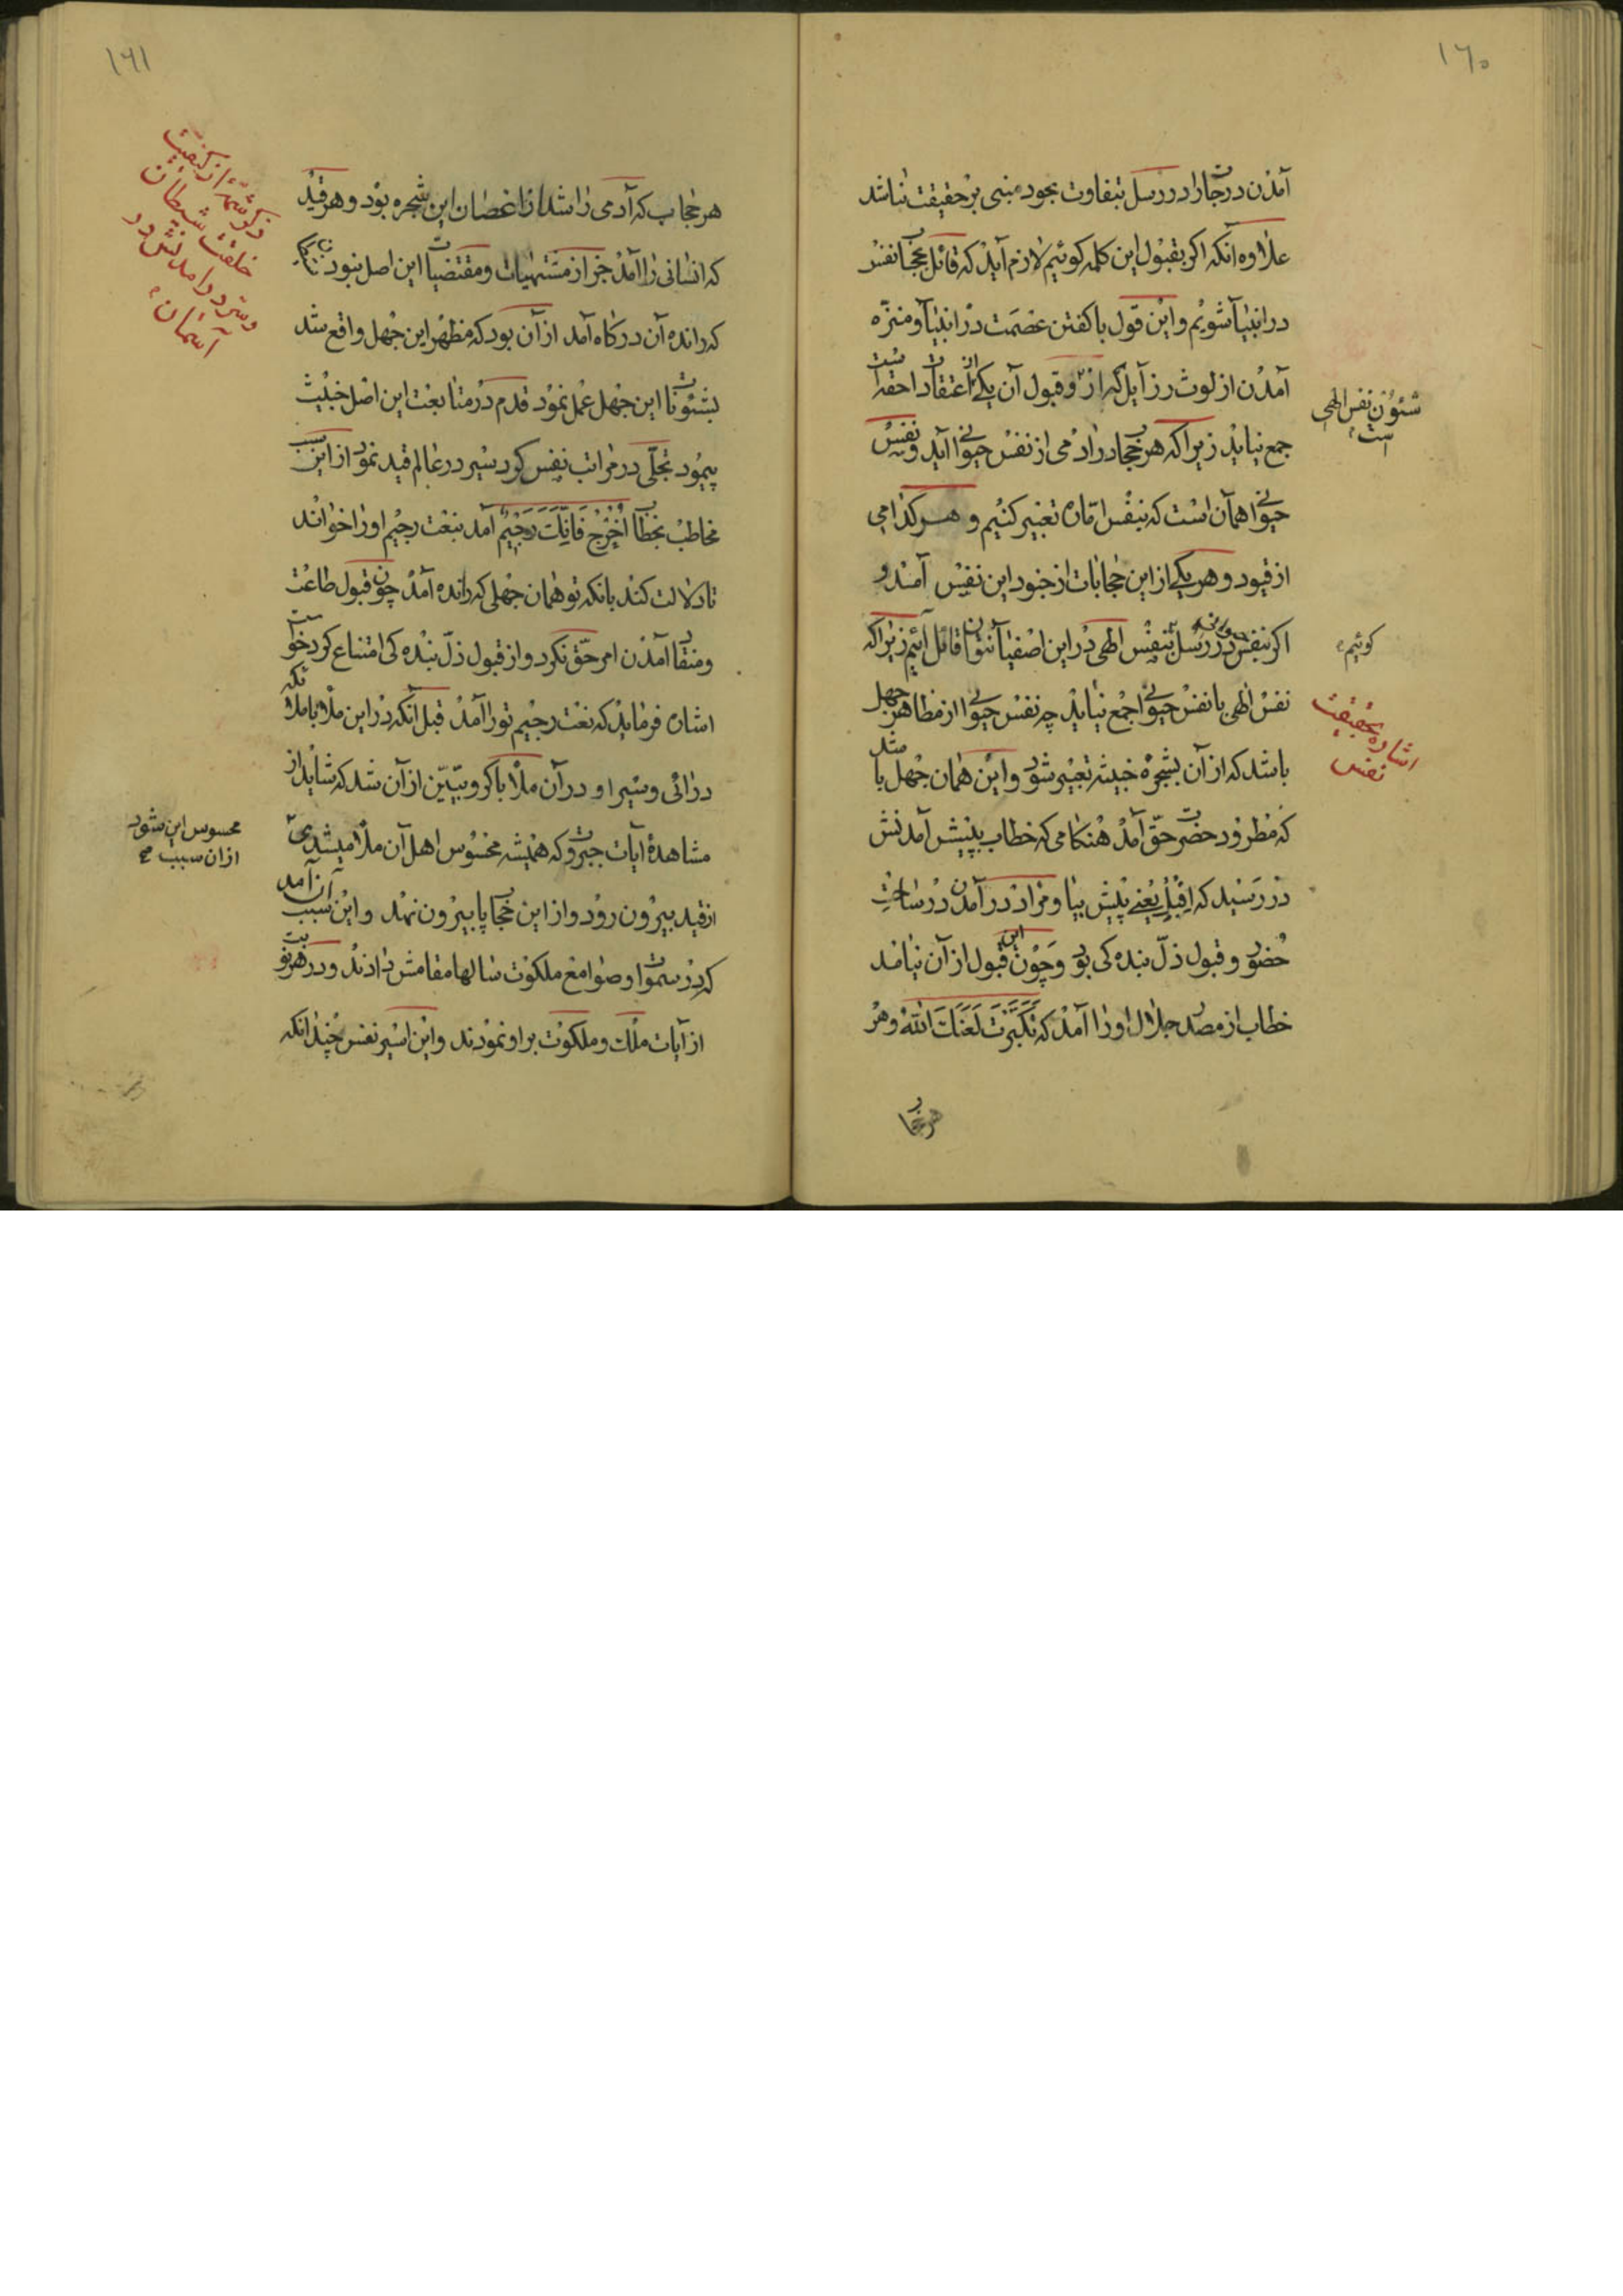 ۱۶۰
آمدن درجات را در رسل بتفاوت بحود مبنی بر حقیقت نباشد
علاوه آنکه اکر بقبول این کلمه کوئیم لازم آید که قائل بحجاب نفس
در انبیا شویم و این قول با کفتن عصمت در انبیا و منزه
آمدن از لوث رزآیل که از و قبول آن یکی از اعتقادات حقه است
شئون نفس الهی است
جمع نیاید زیرا که هر حجاب در آدمی از نفس حیوانی آید و نفس
حیوانی همان است که بنفس اماره تعبیر کنیم و هر کدامی
از قیود و هر یکی از این حجابات از جنود این نفس آمدند و
اکر بنفس در رسل بنفس الهی در این اصفیا نتوان قائل آئیم زیرا که
کوئیم
نفس الهی با نفس حیوانی جمع نیاید چه نفس حیوانی از مظاهر جهل
اشاره بحقیقت نفس
باشد که از آن بشجره خبیثه تعبیر شود و این همان جهل باشد
که مطرود حضرت حق آمد هنکامی که خطاب بپیش آمدنش
در رسید که اقبل یعنی پیش بیا و مراد در آمدن در ساحت
حضور و قبول ذل بنده کی بود و چون این قبول از آن نیامد
خطاب از مصدر جلال او را آمد که تکبرت لعنک الله و هر
هر حجاب
۱۶۱
هر حجاب که آدمی را شد از اغصان این شجره بود و هر قید
ذکر شمهٔ از کیفیت خلقت شیطان و سر در آمدنش در آسمان
که انسانی را آمد جز از مشتهیات و مقتضیات این اصل نبود
که رانده آن درکاه آمد از آن بود که مظهر این جهل واقع شد
بشئونات این جهل عمل نمود قدم در متابعت این اصل خبیث
پیمود تجلی در مراتب نفس کرد سیر در عالم قید نمود از این سبب
مخاطب بخطاب اخرج فانک رجیم آمد بنعت رجیم او را خواند
تا دلالت کند بانکه تو همان جهلی که رانده آمد چون قبول طاعت
و منقاد آمدن امر حق نکرد و از قبول ذل بنده کی امتناع کرد خواست
اشاره فرماید که نعت رجیم تو را آمد قبل آنکه در این ملأ با ملائکه
در آئی و سیر او در آن ملأ با کروبیین از آن شد که شاید از
مشاهدهٔ آیات جبروت که همیشه محسوس اهل آن ملأ میشدی
محسوس این شود از ان سبب صح
از قید بیرون رود و از این حجاب پا بیرون نهد و این سبب آن آمد
که در سموات و صوامع ملکوت سالها مقامش دادند و در هر نوبت
از آیات ملک و ملکوت بر او نمودند و این اسیر نفس چندانکه